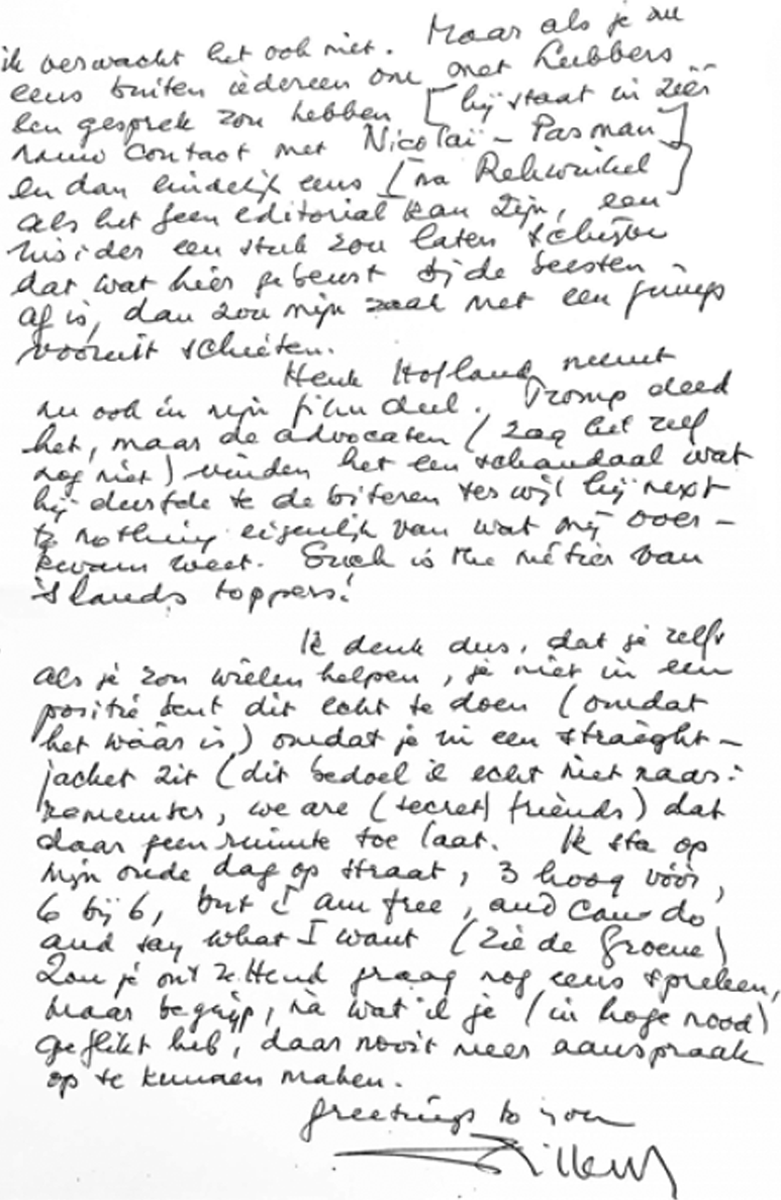 ik verwacht het ook niet. Maar als je nu
eens buiten iedereen om met Lubbers
een gesprek zou hebben [hij staat in zéér
nauw contact met Nicolaï - Pasman]
en dan eindelijk eens [na Rekwinkel]
als het geen editorial kan zijn, een
insider een stuk zou laten schrijven
dat wat hier gebeurt bij de beesten
af is, dan zou mijn zaak met een jump
vooruit schieten.
Henk Hofland neemt
nu ook in mijn film deel. Tromp deed
het, maar de advocaten (zag het zelf
nog niet) vinden het een schandaal wat
hij durfde te debiteren terwijl hij next
to nothing eigenlijk van wat mij over-
kwam weet. Such is the métier van
's lands toppers!
Ik denk dus, dat je zelfs
als je zou willen helpen, je niet in een
positie bent dit echt te doen (omdat
het wáár is) omdat je in een straight-
jacket zit (dit bedoel ik echt niet naar:
remember, we are (secret) friends) dat
daar geen ruimte toe laat. Ik sta op
mijn oude dag op straat, 3 hoog vóór,
6 bij 6, but I am free, and can do
and say what I want (zie de Groene)
Zou je ontzettend graag nog eens spreken,
maar begrijp, na wat ik je (in hoge nood)
geflikt heb, daar nooit meer aanspraak
op te kunnen maken.
greetings to you
Willem